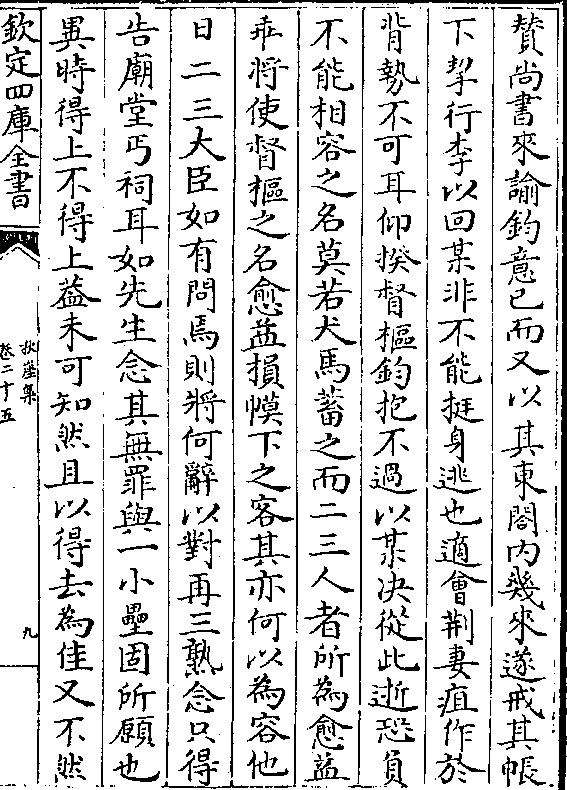 賛尚書來諭鈞意已而又以其東閤内幾來遂戒其帳
下挈行李以回某非不能挺身逃也適會荆妻疽作於
背勢不可耳仰揆督樞鈞抱不過以某决從此逝恐負
不能相容之名莫若犬馬蓄之而二三人者所為愈益
乖將使督樞之名愈益損幙下之客其亦何以為容他
日二三大臣如有問焉則將何辭以對再三熟念只得
告廟堂丐祠耳如先生念其無罪與一小壘固所願也
異時得上不得上葢未可知然且以得去為佳又不然
欽定四庫全書
秋崖集
卷二十五
九